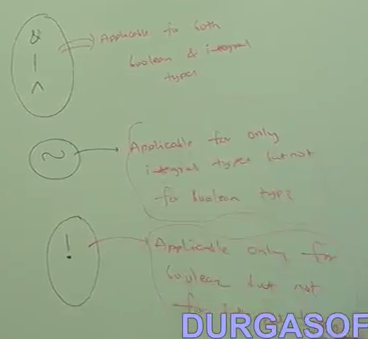 &
|
^
Applicable for both
boolean & integral
types
~
Applicable for only
integral types but not
for boolean type
!
Applicable only for
boolean but not
for
DURGASOF